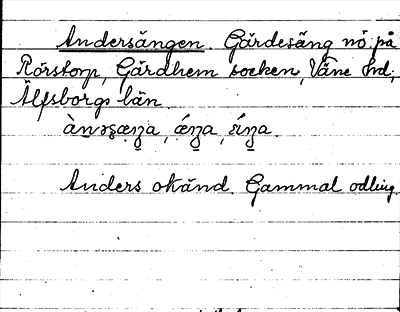 Andersängen. Gärdesäng nö på
Rörstorp, Gärdhem socken, Väne hd,
Älfsborgs län.
Anders okänd. Gammal odling